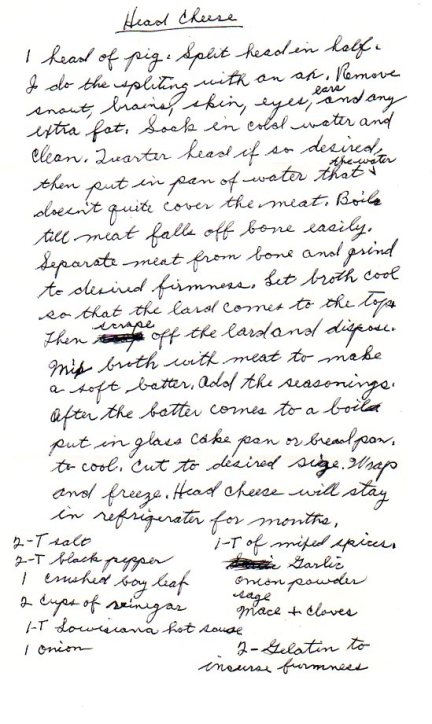 Head Cheese
1 head of pig. Split head in half.
I do the spliting with an ax. Remove
snout, brains, skin, eyes, ears and any
extra fat. Soak in cold water and
clean. Quarter head if so desired,
then put in pan of water that the water
doesn't quite cover the meat. Boil
till meat falls off bone easily.
Separate meat from bone and grind
to desired firmness. Let broth cool
so that the lard comes to the top.
Then scrape off the lard and dispose.
Mix broth with meat to make
a soft batter. Add the seasonings.
After the batter comes to a boil
put in glass cake pan or bread pan.
to cool. Cut to desired size. Wrap
and freeze. Head cheese will stay
in refrigerater for months.
2-T salt
2-T black pepper
1 crushed bay leaf
2 cups of vinegar
1-T Louisiana hot sause
1 onion
1-T of mixed spices.
Garlic
onion powder
sage
Mace + Cloves
2-Gelatin to
incurse firmness